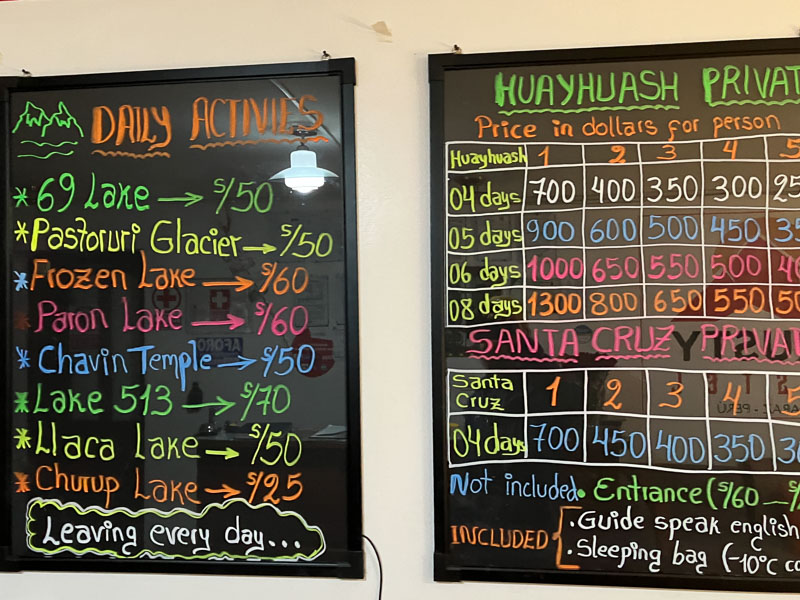 DAILY ACTIVIES
* 69 Lake → S/50
* Pastoruri Glacier → S/50
* Frozen Lake → S/60
* Paron Lake → S/60
* Chavin Temple → S/50
* Lake 513 → S/70
* Llaca Lake → S/50
* Churup Lake → S/25
Leaving every day...
HUAYHUASH PRIVAT
Price in dollars for person
Huayhuash 1 2 3 4 5
04 days 700 400 350 300 25
05 days 900 600 500 450 35
06 days 1000 650 550 500 40
08 days 1300 800 650 550 50
SANTA CRUZ PRIVAT
Santa Cruz 1 2 3 4 5
04 days 700 450 400 350 30
Not included • Entrance (S/60 — S/
INCLUDED
• Guide speak english
• Sleeping bag (-10°C co